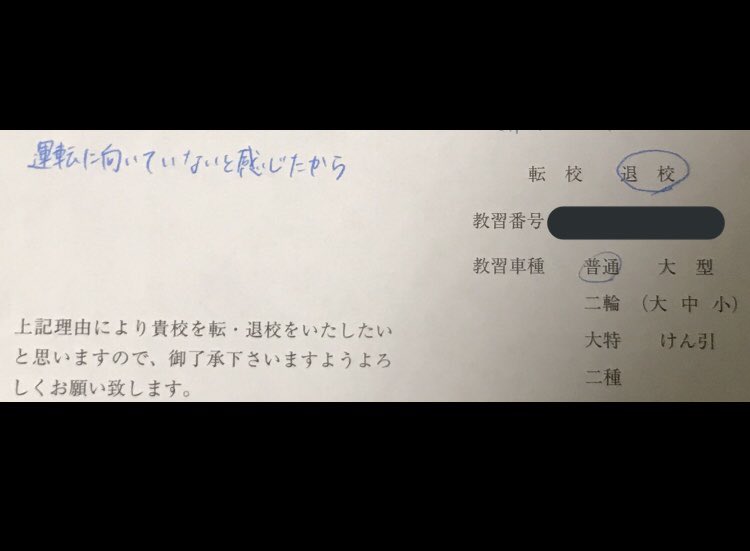 運転に向いていないと感じたから
上記理由により貴校を転・退校をいたしたい
と思いますので、御了承下さいますようよろ
しくお願い致します。
転 校 退 校
教習番号
教習車種 普通 大 型
二輪 (大 中 小)
大特 けん引
二種